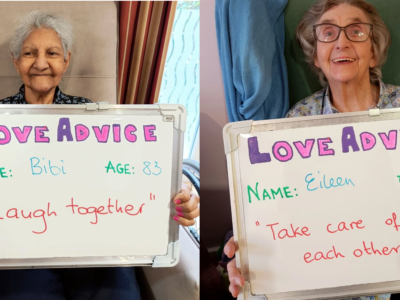 LOVE ADVICE
ME: Bibi AGE: 83
Laugh together"
LOVE ADV
NAME: Eileen
"Take care of
each other